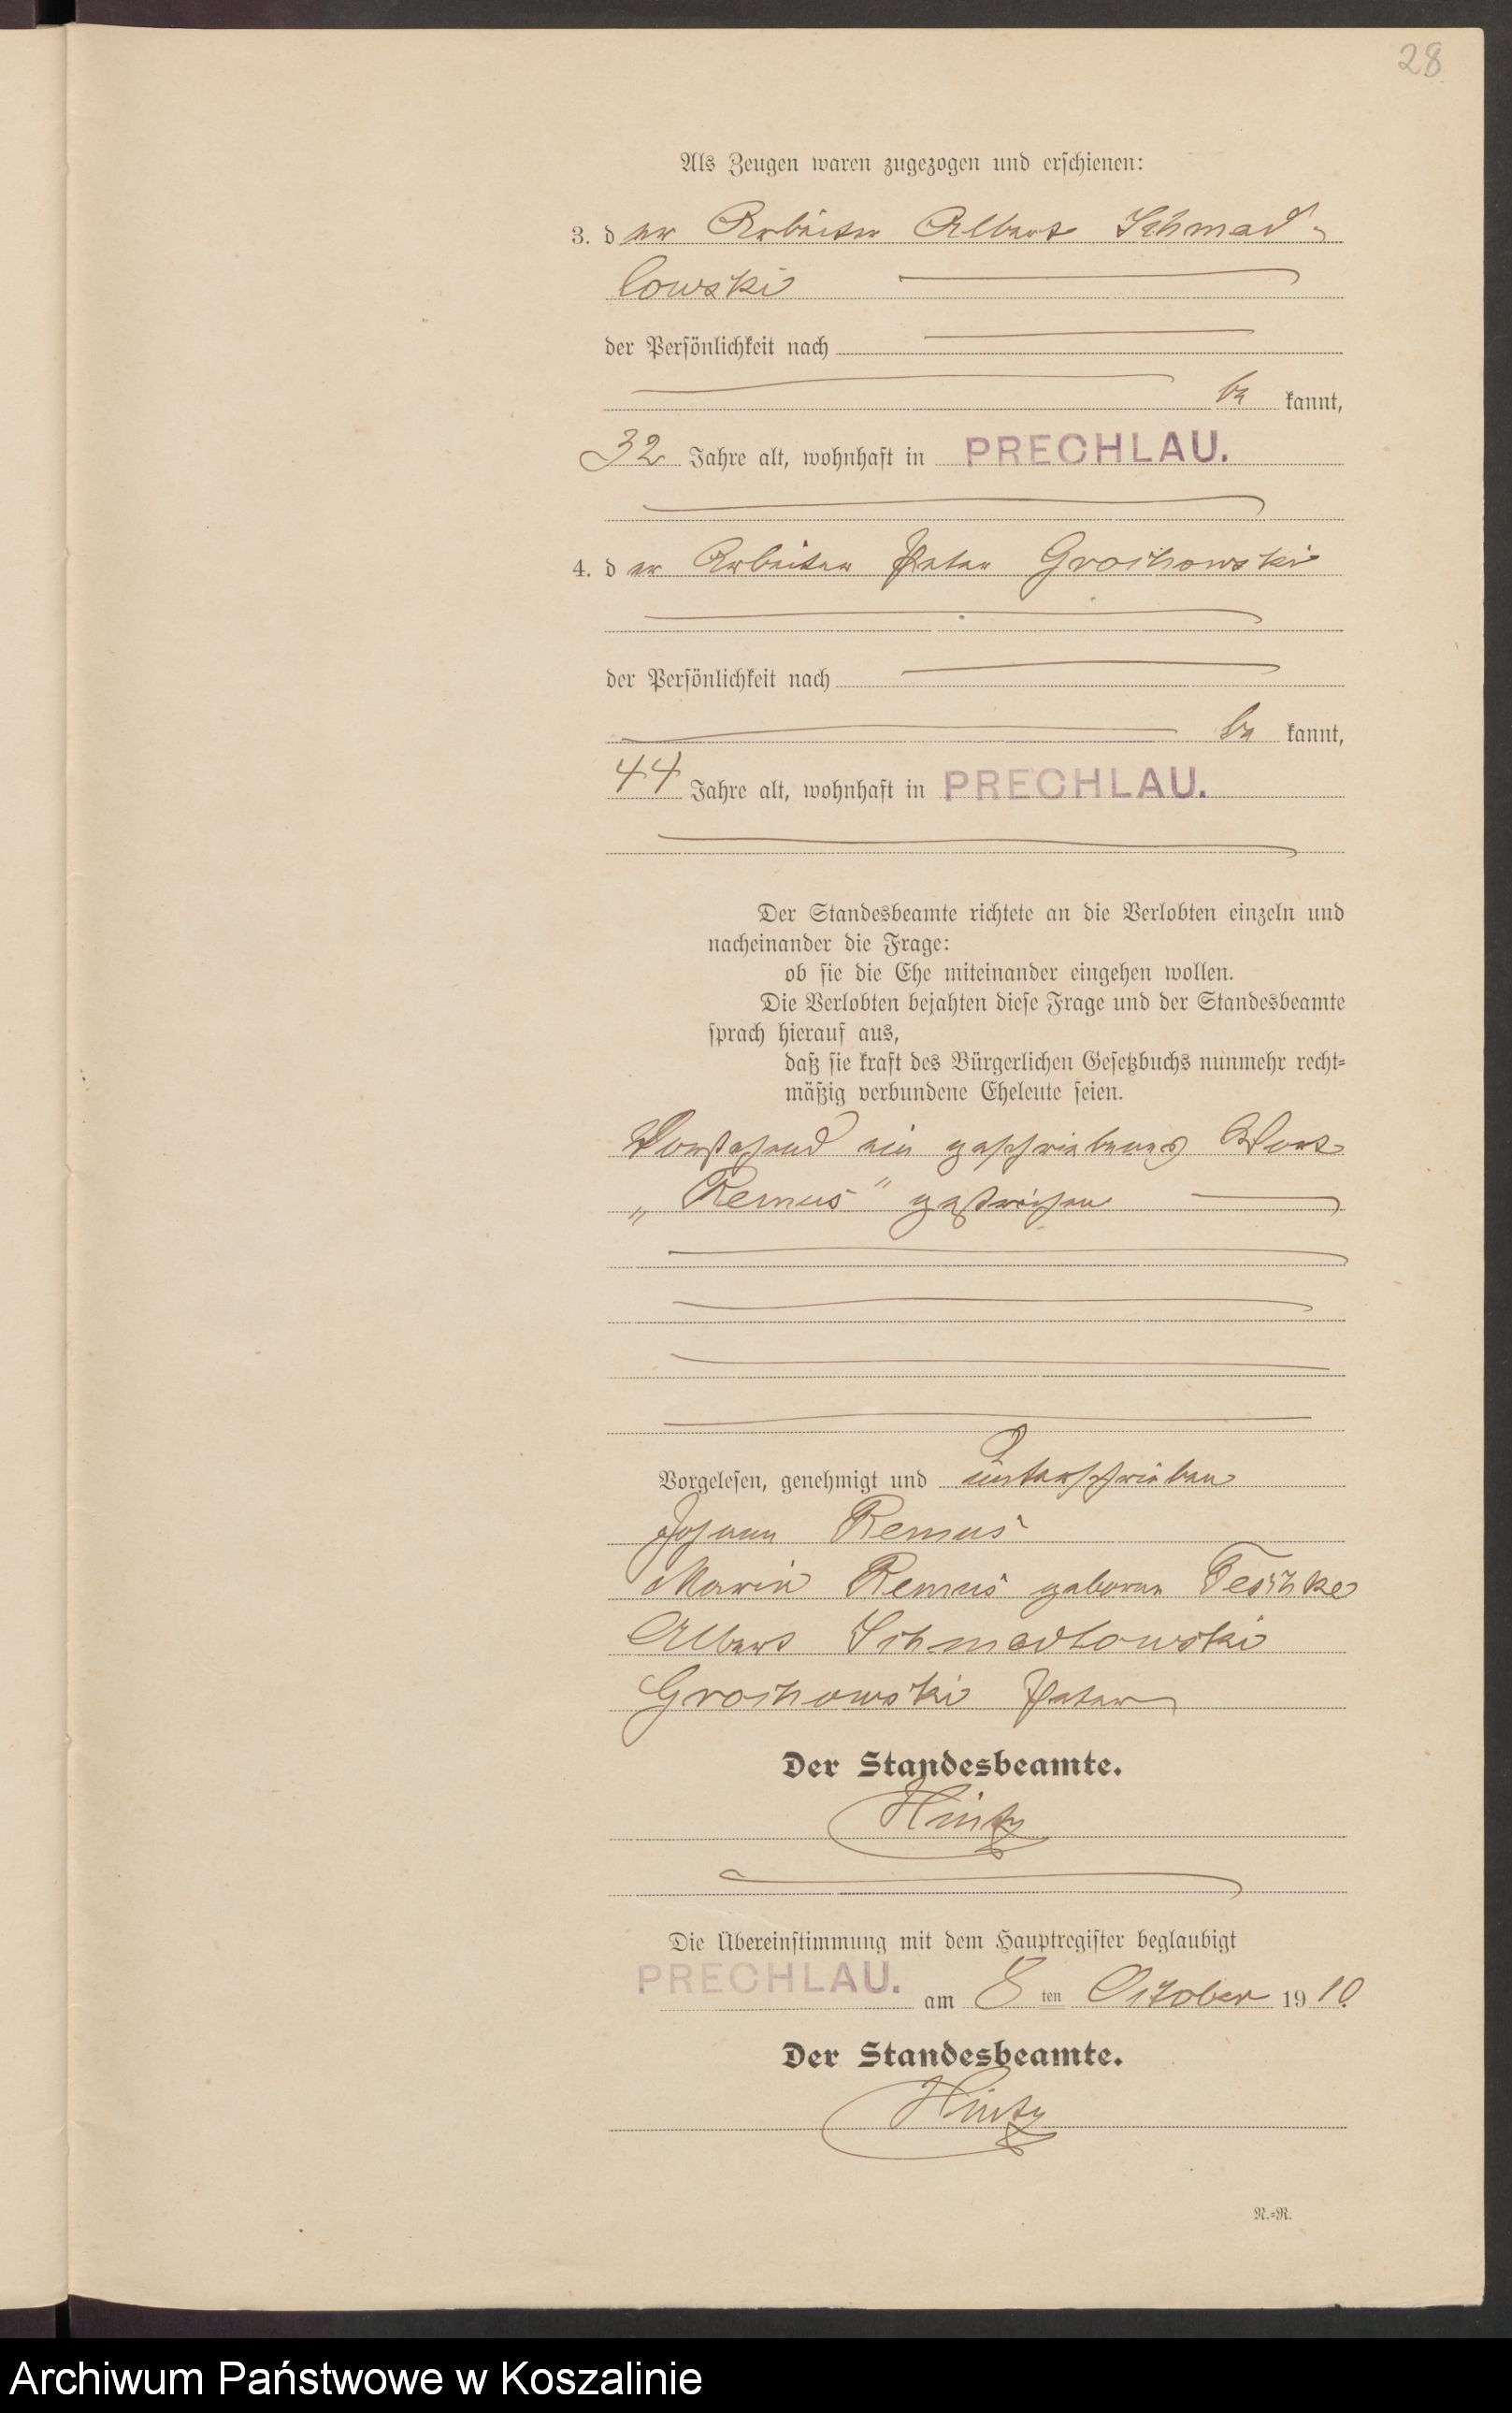 28
Als Zeugen waren zugezogen und erschienen:
3. der Arbeiter Albert Schmad-
lowski
der Persönlichkeit nach
be kannt,
32 Jahre alt, wohnhaft in PRECHLAU.
4. der Arbeiter Peter Grochowski
der Persönlichkeit nach
be kannt,
44 Jahre alt, wohnhaft in PRECHLAU.
Der Standesbeamte richtete an die Verlobten einzeln und
nacheinander die Frage:
ob sie die Ehe miteinander eingehen wollen.
Die Verlobten bejahten diese Frage und der Standesbeamte
sprach hierauf aus,
daß sie kraft des Bürgerlichen Gesetzbuchs nunmehr recht-
mäßig verbundene Eheleute seien.
Vorstehend ein geschriebenes Wort
„Remus“ gestrichen
Vorgelesen, genehmigt und unterschrieben
Johann Remus
Marie Remus geboren Teschke
Albert Schmadlowski
Grochowski Peter
Der Standesbeamte.
Hintz
Die Übereinstimmung mit dem Hauptregister beglaubigt
PRECHLAU. am 8 ten October 1910.
Der Standesbeamte.
Hintz
N.-N.
Archiwum Państwowe w Koszalinie